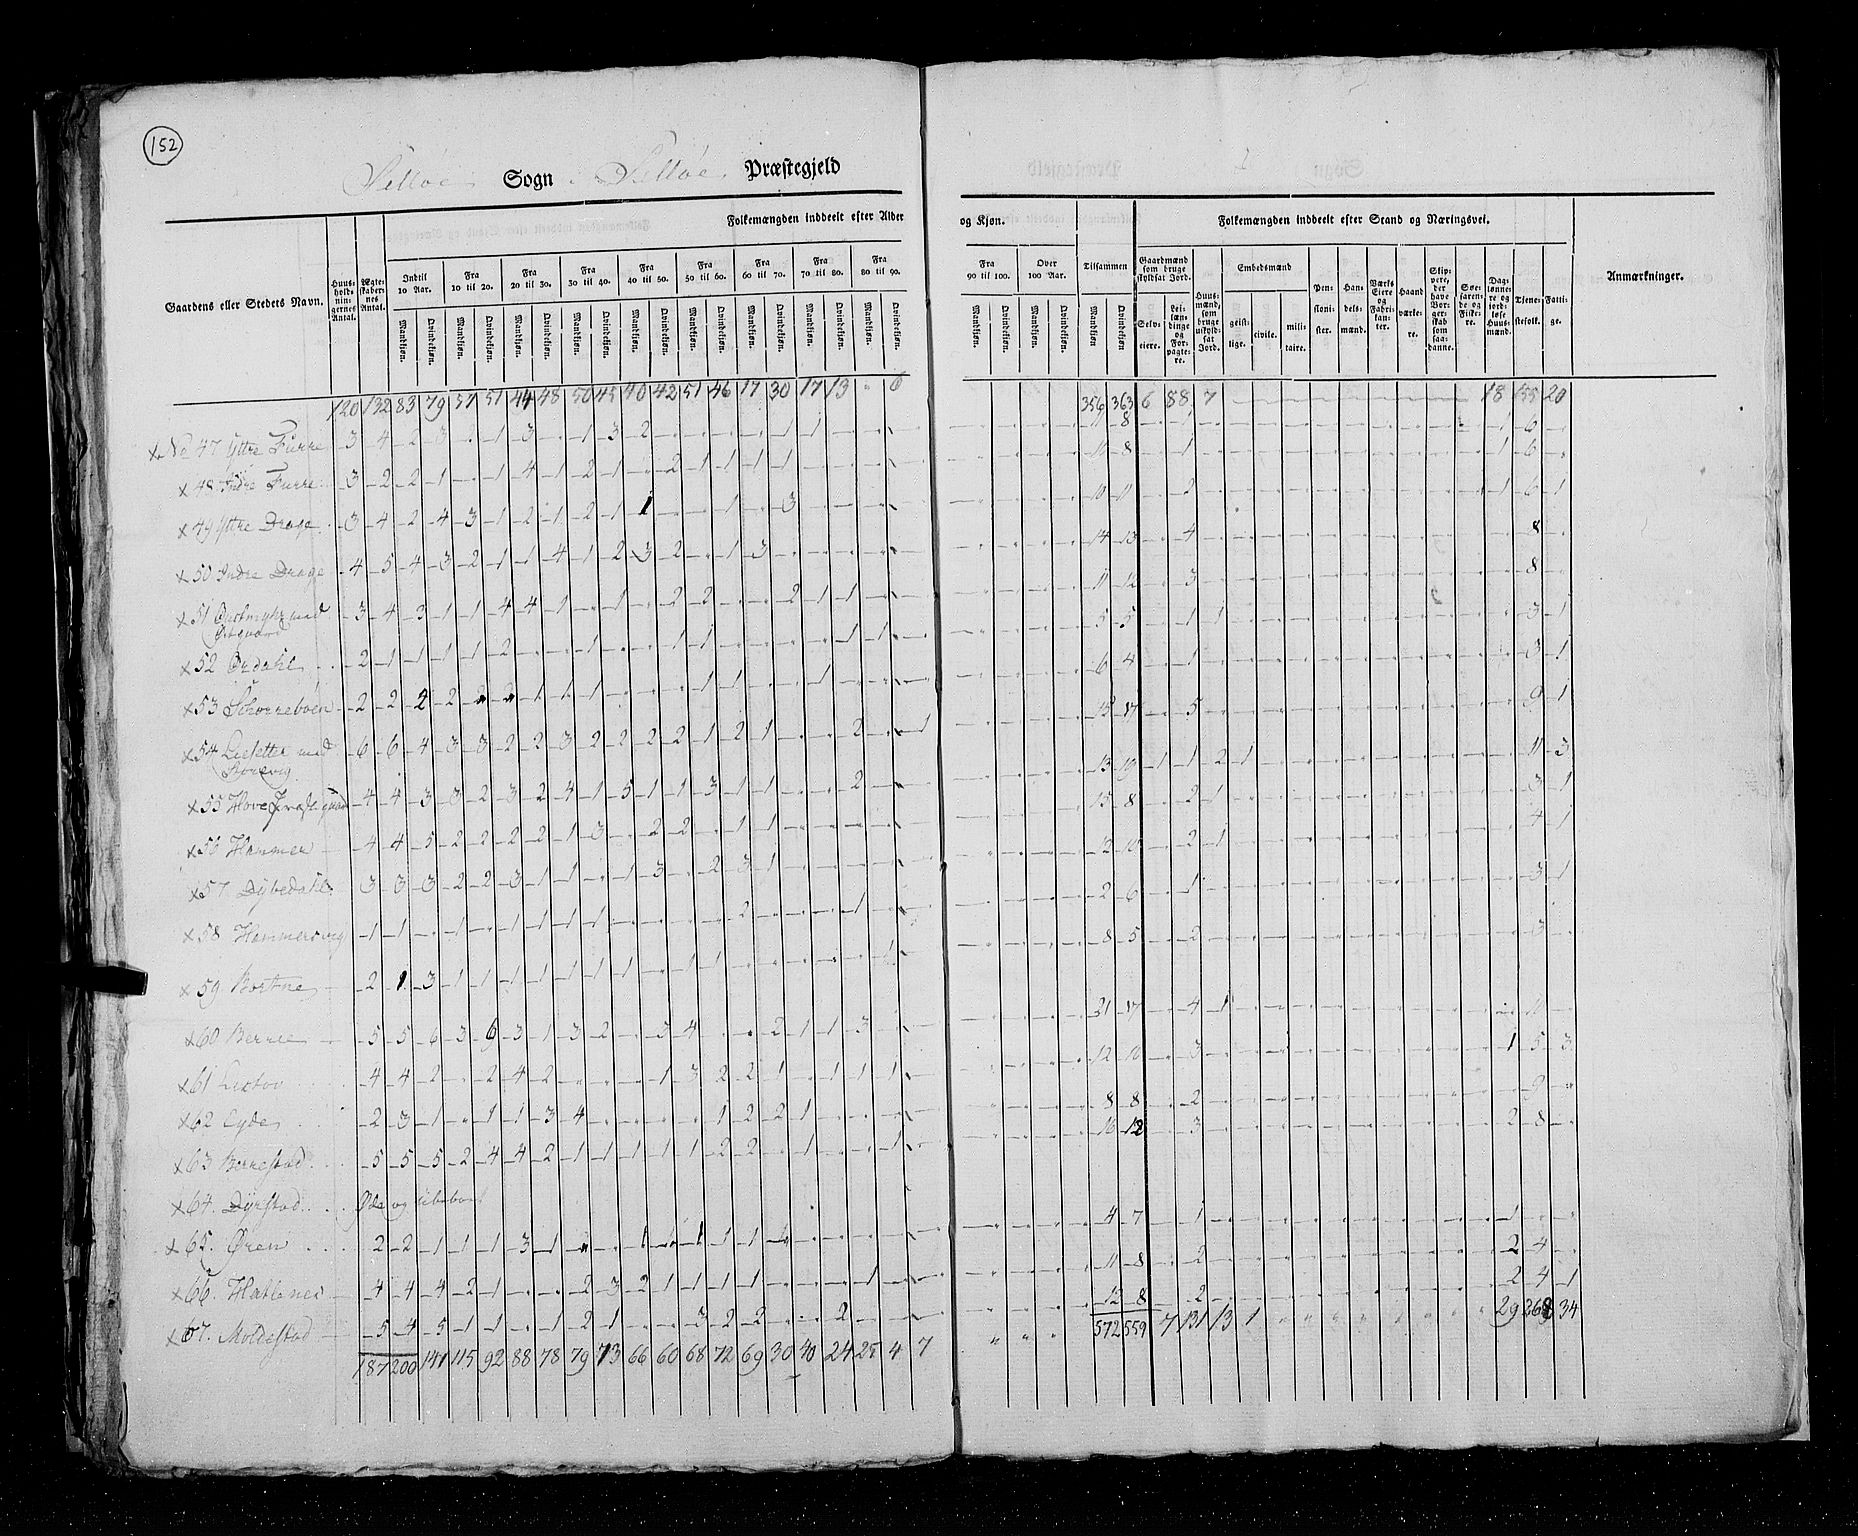 152
Selløe Sogn i Selløe Præstegjeld
Gaardens eller Stedets Navn.
Huusholdningernes Antal.
Ægteskabernes Antal.
Folkemængden inddeelt efter Alder og Kjøn.
Indtil 10 Aar. Fra 10 til 20. Fra 20 til 30. Fra 30 til 40. Fra 40 til 50. Fra 50 til 60. Fra 60 til 70. Fra 70 til 80. Fra 80 til 90. Fra 90 til 100. Over 100 Aar. Tilsammen
Mandkjøn. Qvindekjøn. Mandkjøn. Qvindekjøn. Mandkjøn. Qvindekjøn. Mandkjøn. Qvindekjøn. Mandkjøn. Qvindekjøn. Mandkjøn. Qvindekjøn. Mandkjøn. Qvindekjøn. Mandkjøn. Qvindekjøn. Mandkjøn. Qvindekjøn. Mandkjøn. Qvindekjøn. Mandkjøn. Qvindekjøn. Mandkjøn Qvindekjøn.
Folkemængden inddeelt efter Stand og Næringsvei.
Gaardmænd som bruge skyldsat Jord.
Selveiere.
Leilændinge og Forpagtere.
Huusmænd, som bruge uskyldsat Jord.
Embedsmænd
geistlige. civile. militaire.
Pensionister.
Handelsmænd.
Værks Eiere og Fabrikanter.
Haandværkere.
Skippere, der have Borgerskab som saadanne.
Søefarende og Fiskere.
Daglønnere og jordløse Huusmænd.
Tjenestefolk.
Fattige.
Anmærkninger.
120 132 83 79 57 51 44 48 50 45 40 42 51 46 17 30 17 13 " 6 356 363 6 88 7 18 155 20
x No 47 Yttre Furre 3 4 2 3 1 3 1 3 2 1 1 11 8 1 1 6
x 48 Indre Furre 3 2 2 1 4 1 2 1 2 1 1 1 1 10 8 1 1 6
x 49 Yttre Drage 3 4 2 4 3 1 2 1 2 1 1 1 3 10 11 2 1 6 1
x 50 Indre Drage 4 5 4 3 2 1 1 4 1 2 3 2 1 3 14 13 4 8
x 51 med 3 4 3 1 1 4 4 1 1 2 2 2 1 1 11 12 3 8
x 52 Ørdahl 2 1 1 1 1 2 1 1 1 1 5 5 1 1 3 1
x 53 2 2 2 2 1 1 1 1 1 1 6 4 1 3 1
x 54 med 6 6 4 3 3 2 2 3 2 2 2 2 1 2 1 2 1 15 17 5 9 1
x 55 Hove Præstegaard 4 4 3 3 2 3 2 4 1 5 1 1 3 1 1 2 13 19 1 1 2 1 11 3
x 56 Hammer 4 4 5 2 2 2 2 1 3 2 2 1 1 15 8 2 1 3 1
x 57 Dybedahl 3 3 3 2 2 3 1 1 1 3 2 3 1 12 10 2 1 4 1
x 58 Hammersvig 1 1 1 1 1 1 1 2 1 2 6 1 3 1
x 59 Bortne 2 1 3 1 1 1 1 1 1 1 1 1 8 5 2 3
x 60 Berlee 5 5 6 3 6 3 1 3 2 3 4 2 1 1 3 21 17 4 1 11
x 61 4 4 2 2 4 2 1 3 2 2 1 1 1 1 12 10 3 1 5 3
x 62 Eyde 2 3 1 1 1 3 4 1 2 2 1 8 8 2 9
x 63 Berrestad 5 5 5 2 4 4 2 1 1 1 1 1 2 2 1 1 16 12 3 2 8
x 64. Dyrstad Øde og ubeboet
x 65. Øren 2 2 1 1 1 3 1 1 1 1 1 1 4 7 1 1
x 66. Hatlenes 4 4 4 2 1 2 3 2 1 1 1 1 1 11 8 2 2 4
x 67. Moldestad 5 4 5 1 1 1 2 1 3 2 2 2 12 8 2 2 4 1
187 200 141 115 92 88 78 79 73 66 60 68 72 69 30 40 24 25 4 7 " " " 572 559 7 131 13 1 " " " " " " " " 29 268 34